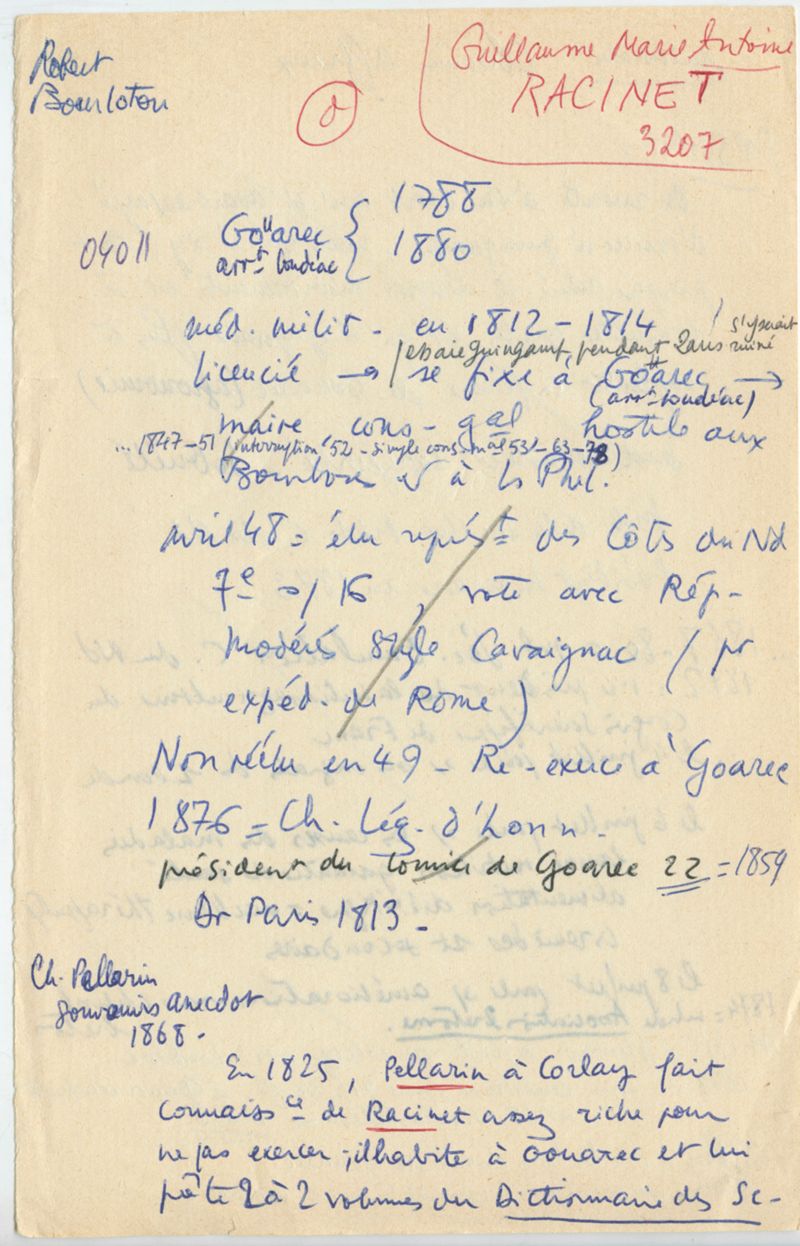 Robert
Bourloton
Guillaume Marie Antoine
RACINET
3207
0
04011
Goüarec { 1788
arrt Loudéac 1880
méd. milit. en 1812-1814
licencié → / essaie Guingamp, pendant 2 ans / s'y serait ruiné
se fixe à Goüarec →
(arrt Loudéac)
maire cons. gal hostile aux
... 1847-51 (interruption 52 - simple cons. mal 53 - 63 - 78)
Bourbons et à Ls Phil.
avril 48 = élu représt = des Côts du Nd
7e s/ 16, vote avec Rép.
modérés style Cavaignac (pr
expéd. de Rome)
Non réélu en 49 - Re-exerce à Goarec
1876 = Ch. Lég. d'Honn.
président du Comice de Goarec 22 = 1859
Dr Paris 1813.
Ch. Pellarin
Souvenirs anecdot
1868.
En 1825, Pellarin à Corlay fait
connaissce de Racinet assez riche pour
ne pas exercer ; il habite à Gouarec et lui
prête 2 à 2 volumes du Dictionnaire des Sc-